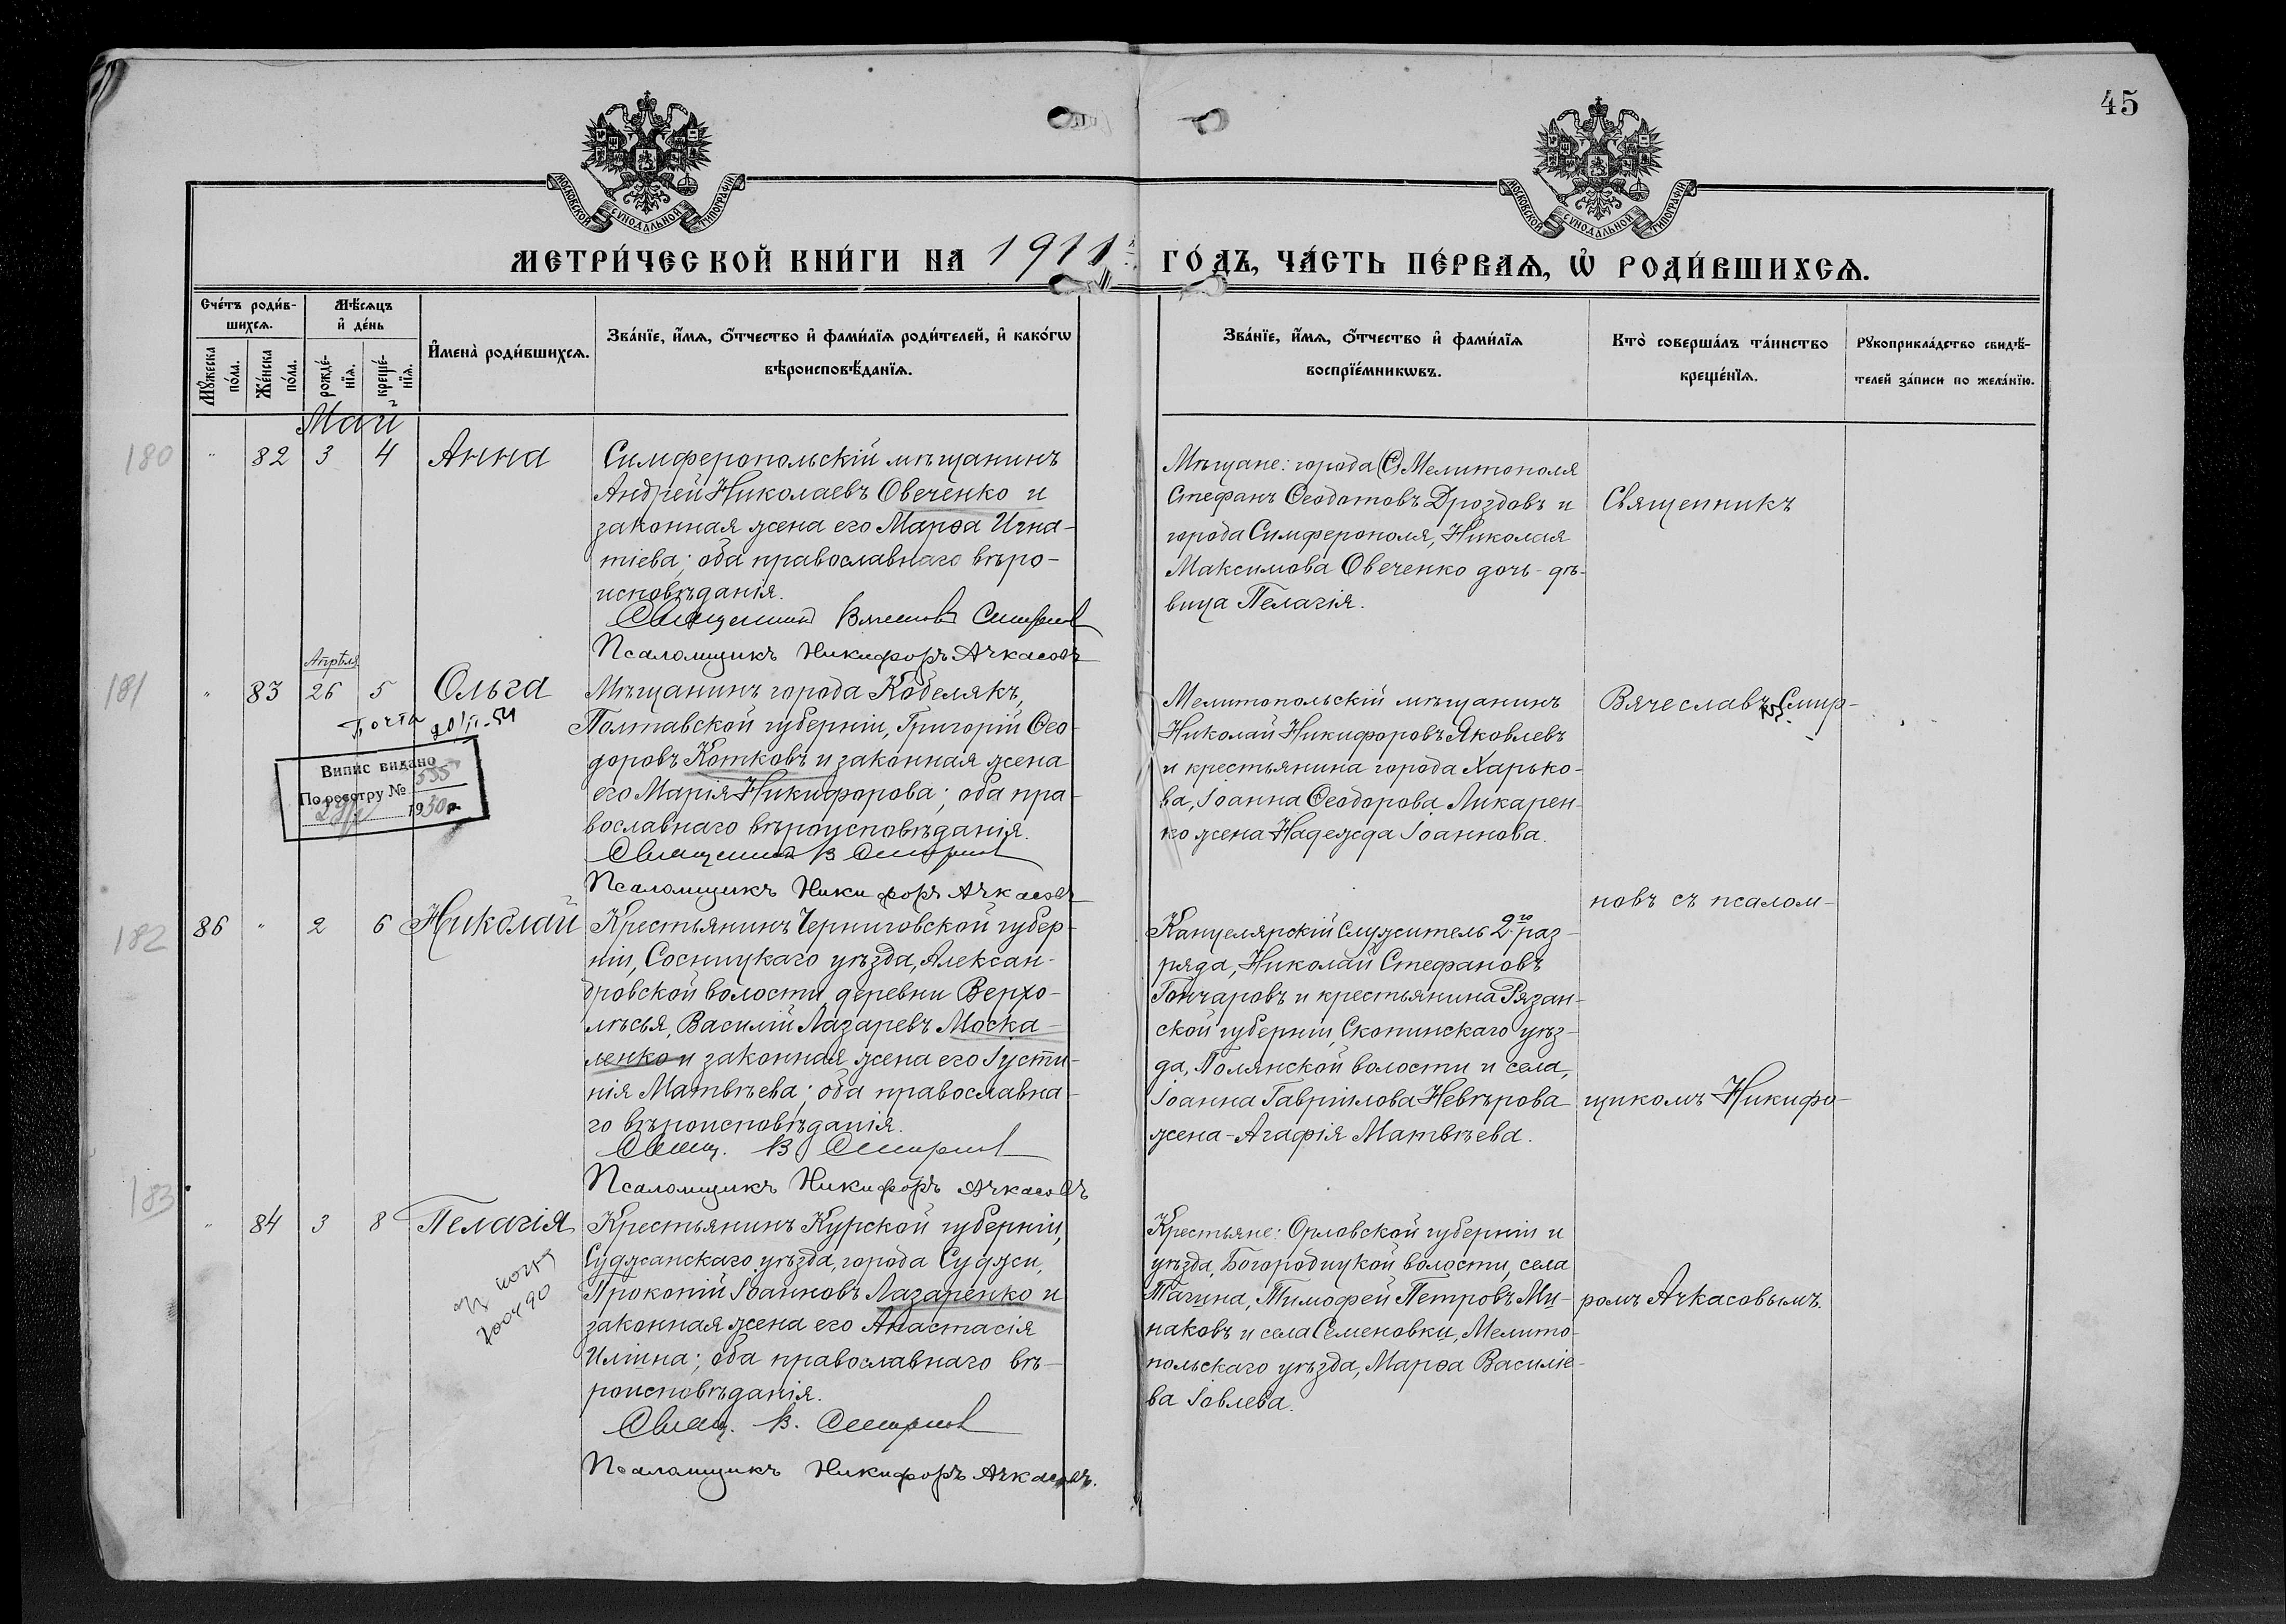 45
МОСКОВСКОЙ СѴНОДАЛЬНОЙ ТИПОГРАФІИ
МОСКОВСКОЙ СѴНОДАЛЬНОЙ ТИПОГРАФІИ
МЕТРИ́ЧЕСКОЙ КНИ́ГИ НА 1911 ГО́ДЪ, ЧА́СТЬ ПЕ́РВАѦ, Ѡ҆ РОДИ́ВШИХСѦ.
Сче́тъ роди́в-
шихсѧ.
Мѣ́сѧцъ
и҆ де́нь
Мꙋ́жеска
по́ла.
Же́нска
по́ла.
рожде́-
нїѧ.
креще́-
нїѧ.
И҆мена̀ роди́вшихсѧ.
Зва́нїе, и҆́мѧ, ѻ҆́тчество и҆ фами́лїѧ роди́телей, и҆ како́гѡ
вѣроисповѣ́данїѧ.
Зва́нїе, и҆́мѧ, ѻ҆́тчество и҆ фами́лїѧ
воспрїе́мникѡвъ.
Кто̀ соверша́лъ та́инство
креще́нїѧ.
Рꙋкоприкла́дство свидѣ́-
телей за́писи по жела́нїю.
Май
180 " 82 3 4 Анна
Симферопольскій мѣщанинъ
Андрей Николаевъ Овеченко и
законная жена его Марѳа Игна-
тіева; оба православнаго вѣро-
исповѣданія.
Священникъ Вячеславъ Смирновъ
Псаломщикъ Никифоръ Ачкасовъ
Мѣщане: города (С) Мелитополя
Стефанъ Ѳеодотовъ Дроздовъ и
города Симферополя, Николая
Максимова Овеченко дочь-дѣ-
вица Пелагія.
Священникъ
Апрѣля
181 " 83 26 5 Ольга
Почта 20/II-54
Випис видано
По реєстру № 535
1930 р
Мѣщанинъ города Кобелякъ,
Полтавской губерніи, Григорій Ѳео-
доровъ Котковъ и законная жена
его Марія Никифорова; оба пра-
вославнаго вѣроисповѣданія.
Священникъ В Смирновъ
Псаломщикъ Никифоръ Ачкасовъ
Мелитопольскій мѣщанинъ
Николай Никифоровъ Яковлевъ
и крестьянина города Харько-
ва, Іоанна Ѳеодорова Ликарен-
ко жена Надежда Іоаннова.
Вячеславъ Смир-
182 86 " 2 6 Николай
Крестьянинъ Черниговской губер-
ніи, Сосницкаго уѣзда, Алексан-
дровской волости, деревни Верхо-
лѣсья, Василій Лазаревъ Моска-
ленко и законная жена его Іусти-
нія Матвѣева; оба православна-
го вѣроисповѣданія.
Свящ. В Смирновъ
Псаломщикъ Никифоръ Ачкасовъ
Канцелярскій служитель 2го раз-
ряда, Николай Стефановъ
Гончаровъ и крестьянина Рязан-
ской губерніи, Скопинскаго уѣз-
да, Полянской волости и села,
Іоанна Гавріилова Невѣрова
жена-Агафія Матвѣева.
новъ съ псалом-
щикомъ Никифо-
183 " 84 3 8 Пелагія
200490
Крестьянинъ Курской губерніи,
Суджанскаго уѣзда, города Суджи,
Прокопій Іоанновъ Лазаренко и
законная жена его Анастасія
Иліина; оба православнаго вѣ-
роисповѣданія.
Свящ. В. Смирновъ
Псаломщикъ Никифоръ Ачкасовъ.
Крестьяне: Орловской губерніи и
уѣзда, Богородицкой волости, села
Тагина, Тимофей Петровъ Ми-
наковъ и села Семеновки, Мелито-
польскаго уѣзда, Марѳа Василіе-
ва Іовлева.
ромъ Ачкасовымъ.